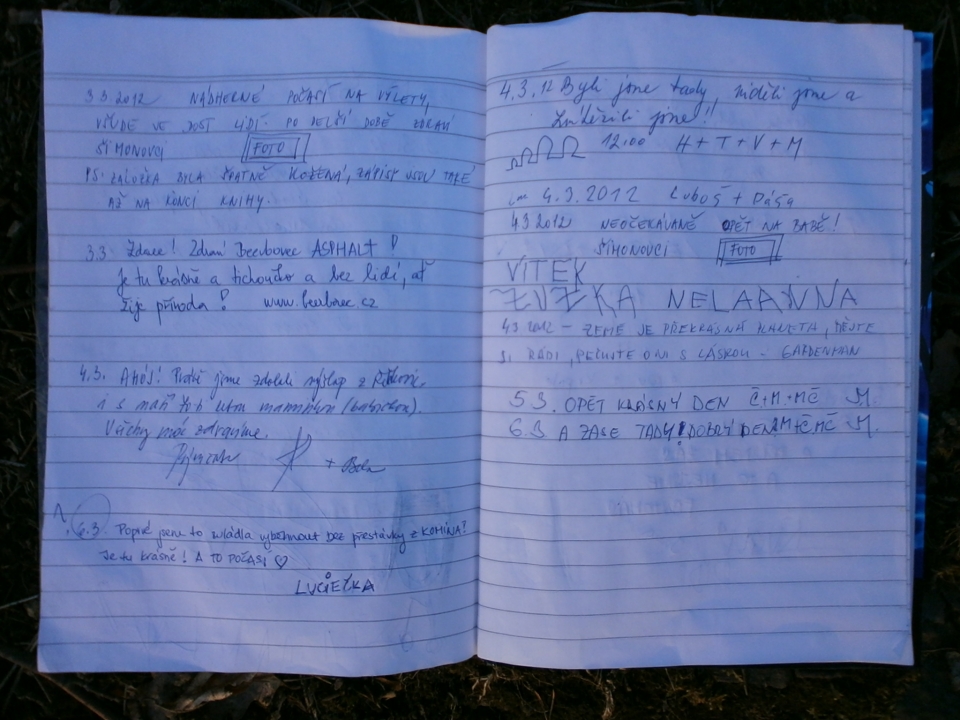 3.3.2012 NÁDHERNÉ POČASÍ NA VÝLETY,
VŠUDE VE DOST LIDÍ. PO DELŠÍ DOBĚ ZDRAVÍ
ŠIMONOVCI FOTO
PS: ZÁLOŽKA BYLA ŠPATNĚ VLOŽENÁ, ZÁPISY JSOU TAKÉ
AŽ NA KONCI KNIHY.
3.3. Zdaní ASPHALT!
Je tu krásně a tichoučko a bez lidí, ať
žije příroda! www.beerborec.cz
4.3. AHOJ! jsme zdolali výšlap z
i s maminkou (babičkou).
Všichny moc zdravíme.
+
6.3 Poprvé jsem to zvládla vyběhnout bez přestávky z KOMÍNA!
Je tu krásně! A TO POČASÍ ♡
LUCIEŠKA
4.3.12 Byli jsme tady, viděli jsme a
zvítězili jsme!!
12:00 H + T + V + M
4.3.2012 Luboš + Dáša
4.3 2012 NEOČEKÁVANĚ OPĚT NA BABĚ!
ŠIMONOVCI FOTO
VÍTEK
ZUZKA
4.3 2012 - ZEMĚ JE PŘEKRÁSNÁ PLANETA, MĚJTE
JI RÁDI, PEČUJTE O NI S LÁSKOU - GARDENMAN
5.3. OPĚT KRÁSNÝ DEN Č+M+MČ M.
6.3 A ZASE TADY! DOBRÝ DEN M+Č+MČ M.